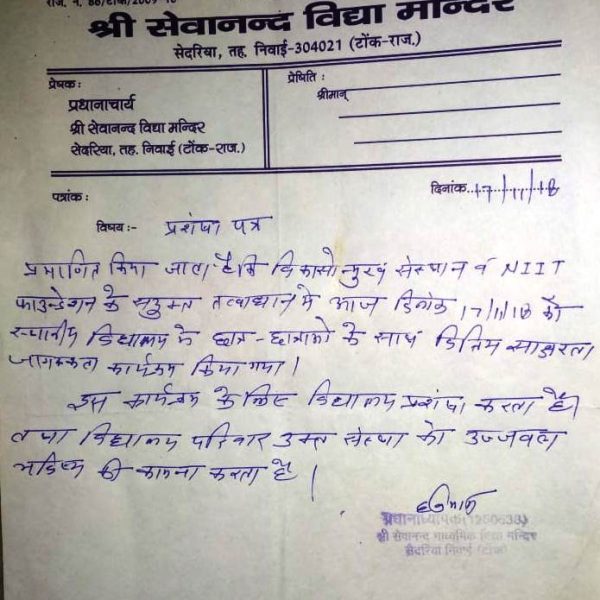 राज. नं. 86/टोंक/2009-10
श्री सेवानन्द विद्या मन्दिर
सेदरिया, तह. निवाई-304021 (टोंक-राज.)
प्रेषक :
प्रधानाचार्य
श्री सेवानन्द विद्या मन्दिर
सेदरिया, तह. निवाई (टोंक-राज.)
प्रेषिति :
श्रीमान्
पत्रांक :
दिनांक 17/11/18
विषय :- प्रशंषा पत्र
प्रमाणित किया जाता है कि विकासोन्मुख संस्थान व NIIT
फाउन्डेशन के सयुक्त तत्वाधान मे आज दिनांक 17/11/18 को
स्थानीय विद्यालय के छात्र-छात्राओ के साथ वित्तिय साक्षरता
जागरूकता कार्यक्रम किया गया।
इस कार्यक्रम के लिए विद्यालय प्रशंषा करता है।
तथा विद्यालय परिवार उक्त संस्था की उज्जवल
भविष्य की कामना करता है।
प्रधानाध्यापक
श्री सेवानन्द माध्यमिक विद्या मन्दिर
सेदरिया निवाई (टोंक)